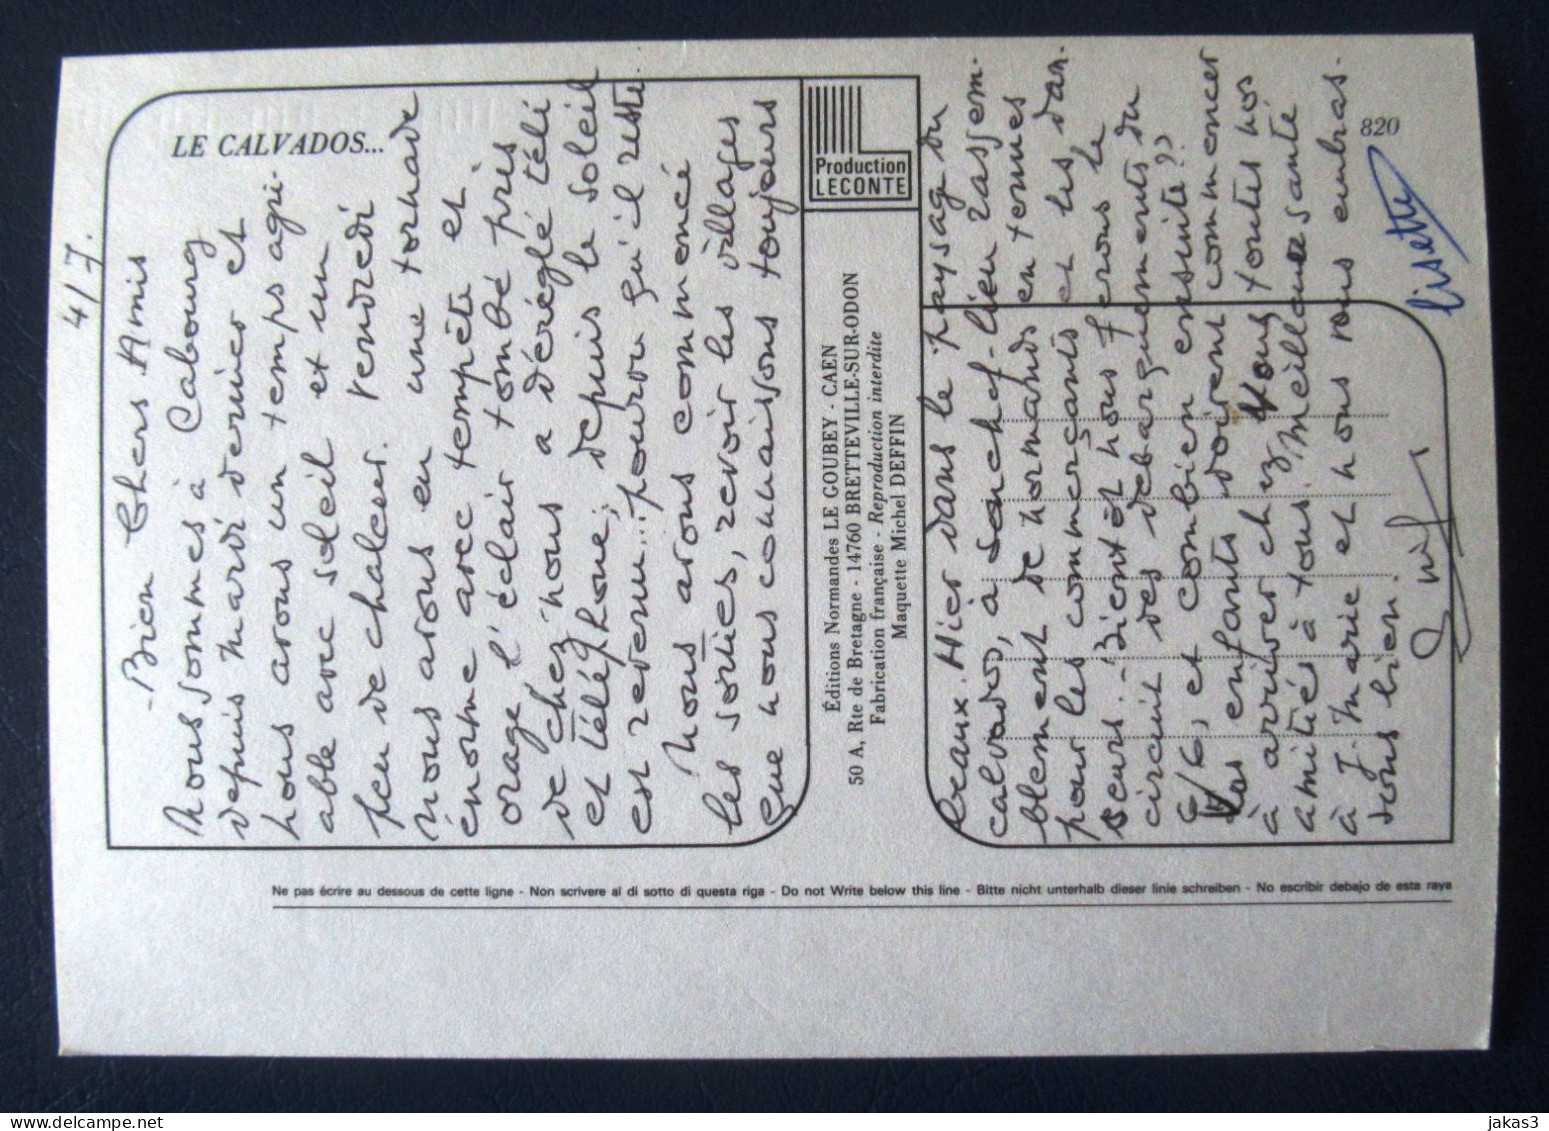 4/7.
- Bien Chers Amis
Nous sommes à Cabourg
depuis mardi dernier et
nous avons un temps agré-
able avec soleil et un
peu de chaleur. Vendredi
nous avons eu une tornade
énorme avec tempête et
orage l'éclair tombé près
de chez nous a déréglé télé
et téléphone, depuis le soleil
est revenu... pourvu qu'il reste.
Nous avons commencé
les sorties, revoir les villages
que nous connaissons toujours
beaux. Hier dans le paysage du
calvados, à           chef-lieu rassem-
blement de normands en tenues
pour les commerçants et les dan.
seurs. - Bientôt nous ferons le
circuit des debarquements du
6/6, et combien ensuite ??
Vos enfants doivent commencer
à arriver chez Vous toutes nos
amitiés à tous. Meilleure santé
à J. Marie et nous vous embras.
sons bien.
lisette
LE CALVADOS...
Production
LECONTE
820
Éditions Normandes LE GOUBEY - CAEN
50 A, Rte de Bretagne - 14760 BRETTEVILLE-SUR-ODON
Fabrication française - Reproduction interdite
Maquette Michel DEFFIN
Ne pas écrire au dessous de cette ligne - Non scrivere al di sotto di questa riga - Do not Write below this line - Bitte nicht unterhalb dieser linie schreiben - No escribir debajo de esta raya
delcampe.net
jakas3